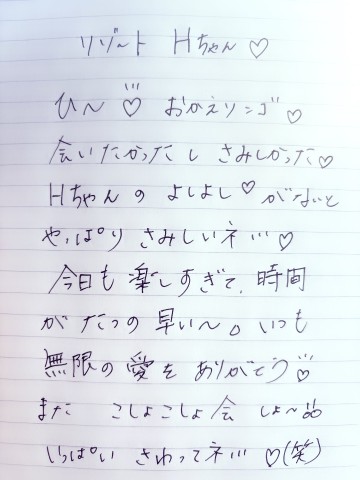 リゾート Hちゃん♡
ひ〜♡ おかえりンゴ♡
会いたかったし さみしかった♡
Hちゃんの よしよし♡がないと
やっぱり さみしいネ…♡
今日も楽しすぎて、時間
がたつの早い〜。いつも
無限の愛をありがとう♡
また こしょこしょ会 しよ〜
いっぱい さわってネ…♡(笑)